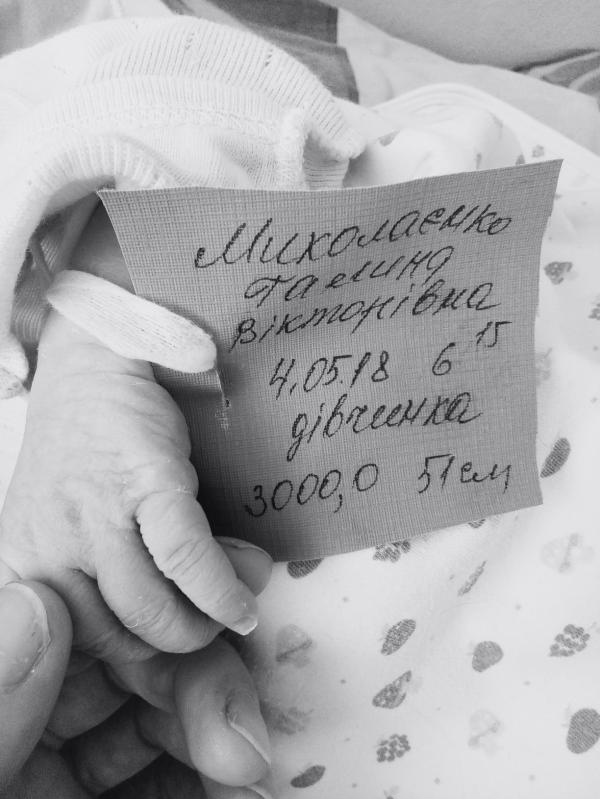 Миколаєнко
Галина
Вікторівна
4.05.18 6 15
дівчинка
3000,0 51см